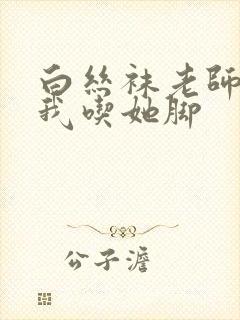 白丝袜老師
我喫她脚
公子澹